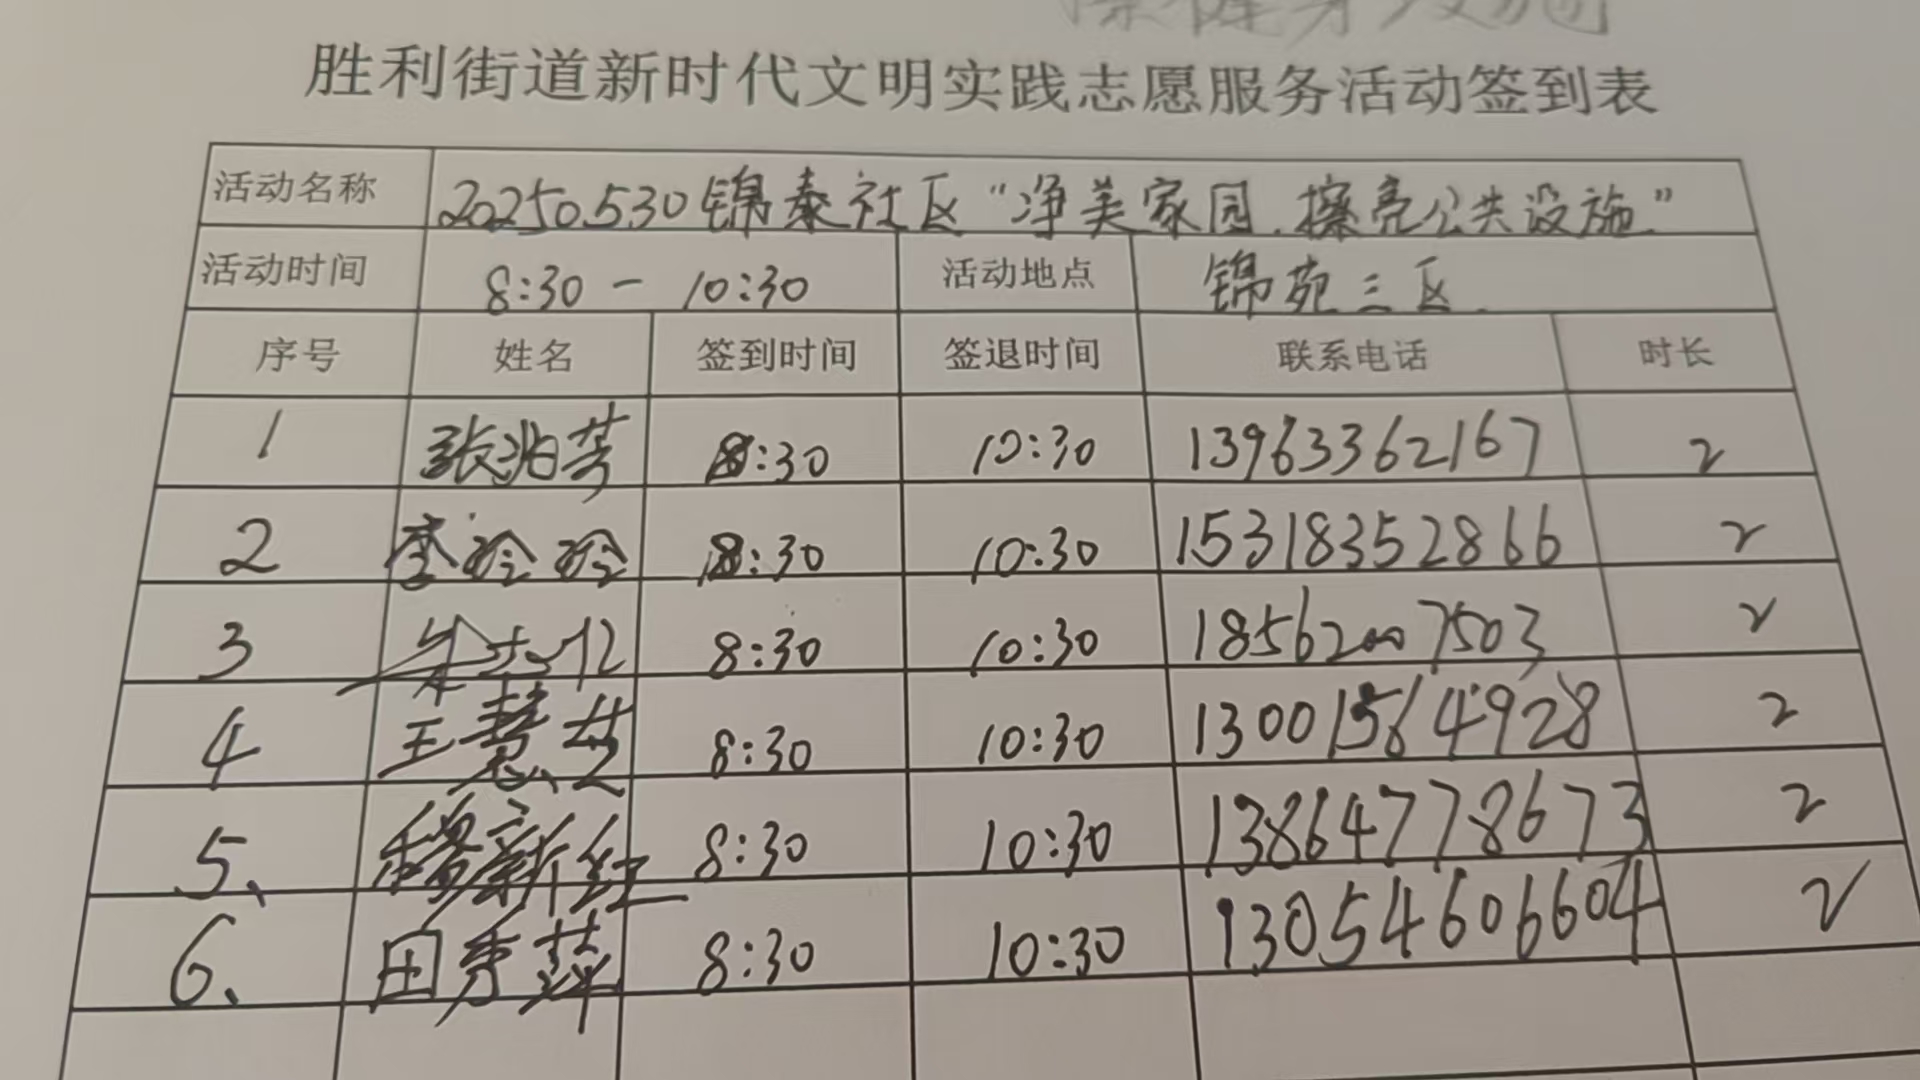 擦健身设施
胜利街道新时代文明实践志愿服务活动签到表
活动名称 20250530锦泰社区“净美家园.擦亮公共设施”
活动时间 8:30 - 10:30 活动地点 锦苑三区.
序号 姓名 签到时间 签退时间 联系电话 时长
1 张兆芳 8:30 10:30 13963362167 2
2 李玲玲 8:30 10:30 15318352866 2
3 8:30 10:30 18562007503 2
4 王慧 8:30 10:30 13001564928 2
5、 穆新红 8:30 10:30 13864778673 2
6、 田秀萍 8:30 10:30 13054606604 2